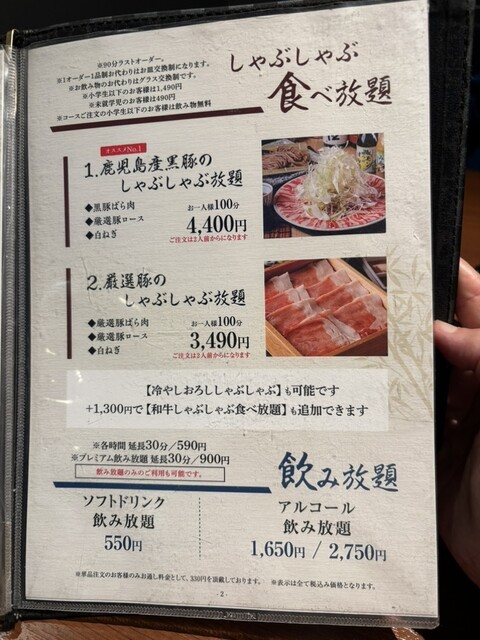 ※90分ラストオーダー。
※1オーダー1品制お代わりはお皿交換制になります。
※お飲み物のお代わりはグラス交換制です。
※小学生以下のお客様は1,490円
※未就学児のお客様は490円
※コースご注文の小学生以下のお客様は飲み物無料
しゃぶしゃぶ
食べ放題
オススメNo.1
1.鹿児島産黒豚の
しゃぶしゃぶ放題
◆黒豚ばら肉
◆厳選豚ロース
◆白ねぎ
お一人様100分
4,400円
ご注文は2人前からになります
2.厳選豚の
しゃぶしゃぶ放題
◆厳選豚ばら肉
◆厳選豚ロース
◆白ねぎ
お一人様100分
3,490円
ご注文は2人前からになります
【冷やしおろししゃぶしゃぶ】も可能です
+1,300円で【和牛しゃぶしゃぶ食べ放題】も追加できます
※各時間 延長30分/590円
※プレミアム飲み放題 延長30分/900円
飲み放題のみのご利用も可能です。
飲み放題
ソフトドリンク
飲み放題
550円
アルコール
飲み放題
1,650円 / 2,750円
※単品注文のお客様のみお通し料金として、330円を頂戴しております。 ※表示は全て税込み価格となります。
- 2 -